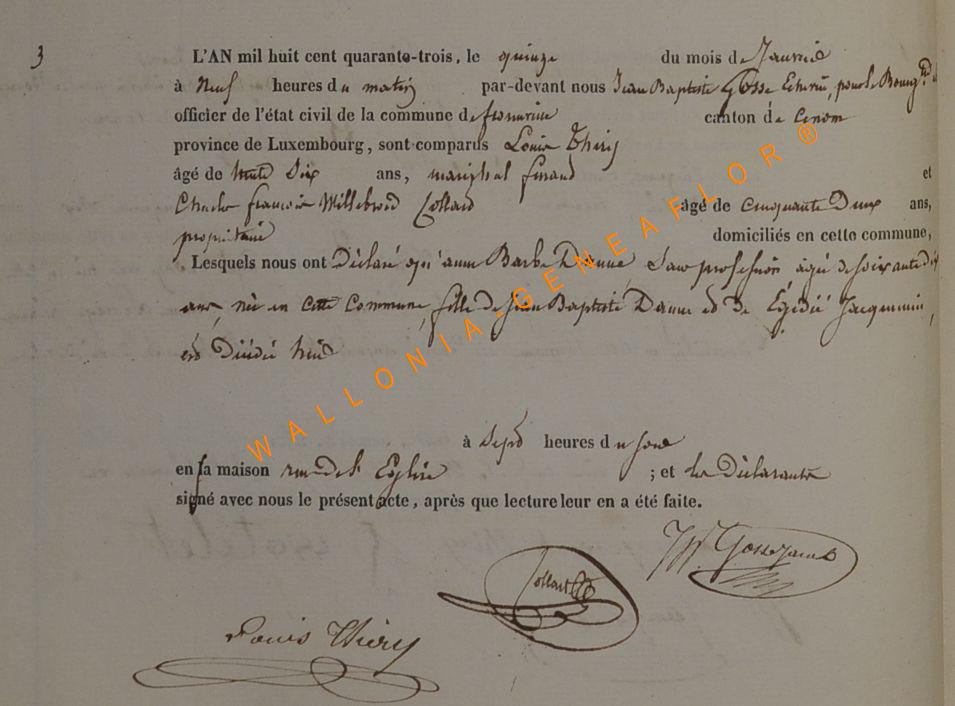 3
L'AN mil huit cent quarante-trois, le quinze du mois de Janvier
à Neuf heures du matin par-devant nous Jean Baptiste Gosse Echevin, pour le Bourg
officier de l'état civil de la commune de canton de
province de Luxembourg, sont comparus Louis Thiry
âgé de trente Six ans, maréchal ferrand et
Charles françois Willebrord Collard âgé de cinquante Deux ans,
propriétaire domiciliés en cette commune,
Lesquels nous ont Déclaré qu'anne Barbe Danne Sans profession âgée de soixante dix
ans, née en cette Commune, fille de Jean Baptiste Danne et de Egidie Jacquemin,
est Décédée hier
à Sept heures du soir
en sa maison rue de l'Eglise ; et les Déclarants
signé avec nous le présent acte, après que lecture leur en a été faite.
Collard
Louis Thiry
WALLONIA-GENEAFLOR®